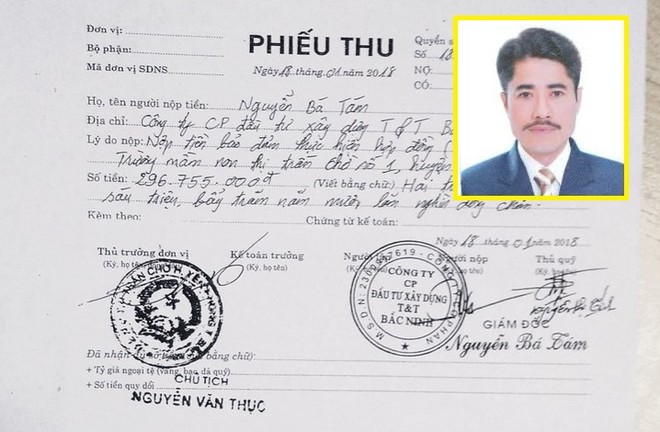 Đơn vị:
Bộ phận:
Mã đơn vị SDNS
PHIẾU THU
Ngày 18 tháng 01 năm 2018
Quyển s
Số: 18
NỢ:
CÓ:
Họ, tên người nộp tiền: Nguyễn Bá Tám
Địa chỉ: Công ty CP đầu tư xây dựng T&T Bắ
Lý do nộp: Nộp tiền bảo đảm thực hiện hợp đồng (
Trường mầm non thị trấn Chờ số 1, huyện
Số tiền: 296.755.000đ (Viết bằng chữ) Hai tr
sáu triệu, bảy trăm năm mươi lăm nghìn đồng chẵn.
Kèm theo: Chứng từ kế toán:
Ngày 18 tháng 01 năm 2018
Thủ trưởng đơn vị Kế toán trưởng Người lập Người nộp Thủ quỹ
(Ký, họ tên) (Ký, họ tên) (Ký, họ tên) (Ký, họ tên)
CÔNG TY
CP
ĐẦU TƯ XÂY DỰNG
T&T
BẮC NINH
GIÁM ĐỐC
Nguyễn Bá Tám
Đã nhận đủ số tiền (viết bằng chữ):
+ Tỷ giá ngoại tệ (vàng, bạc đá quý)
+ Số tiền quy đổi
CHỦ TỊCH
NGUYỄN VĂN THỤC